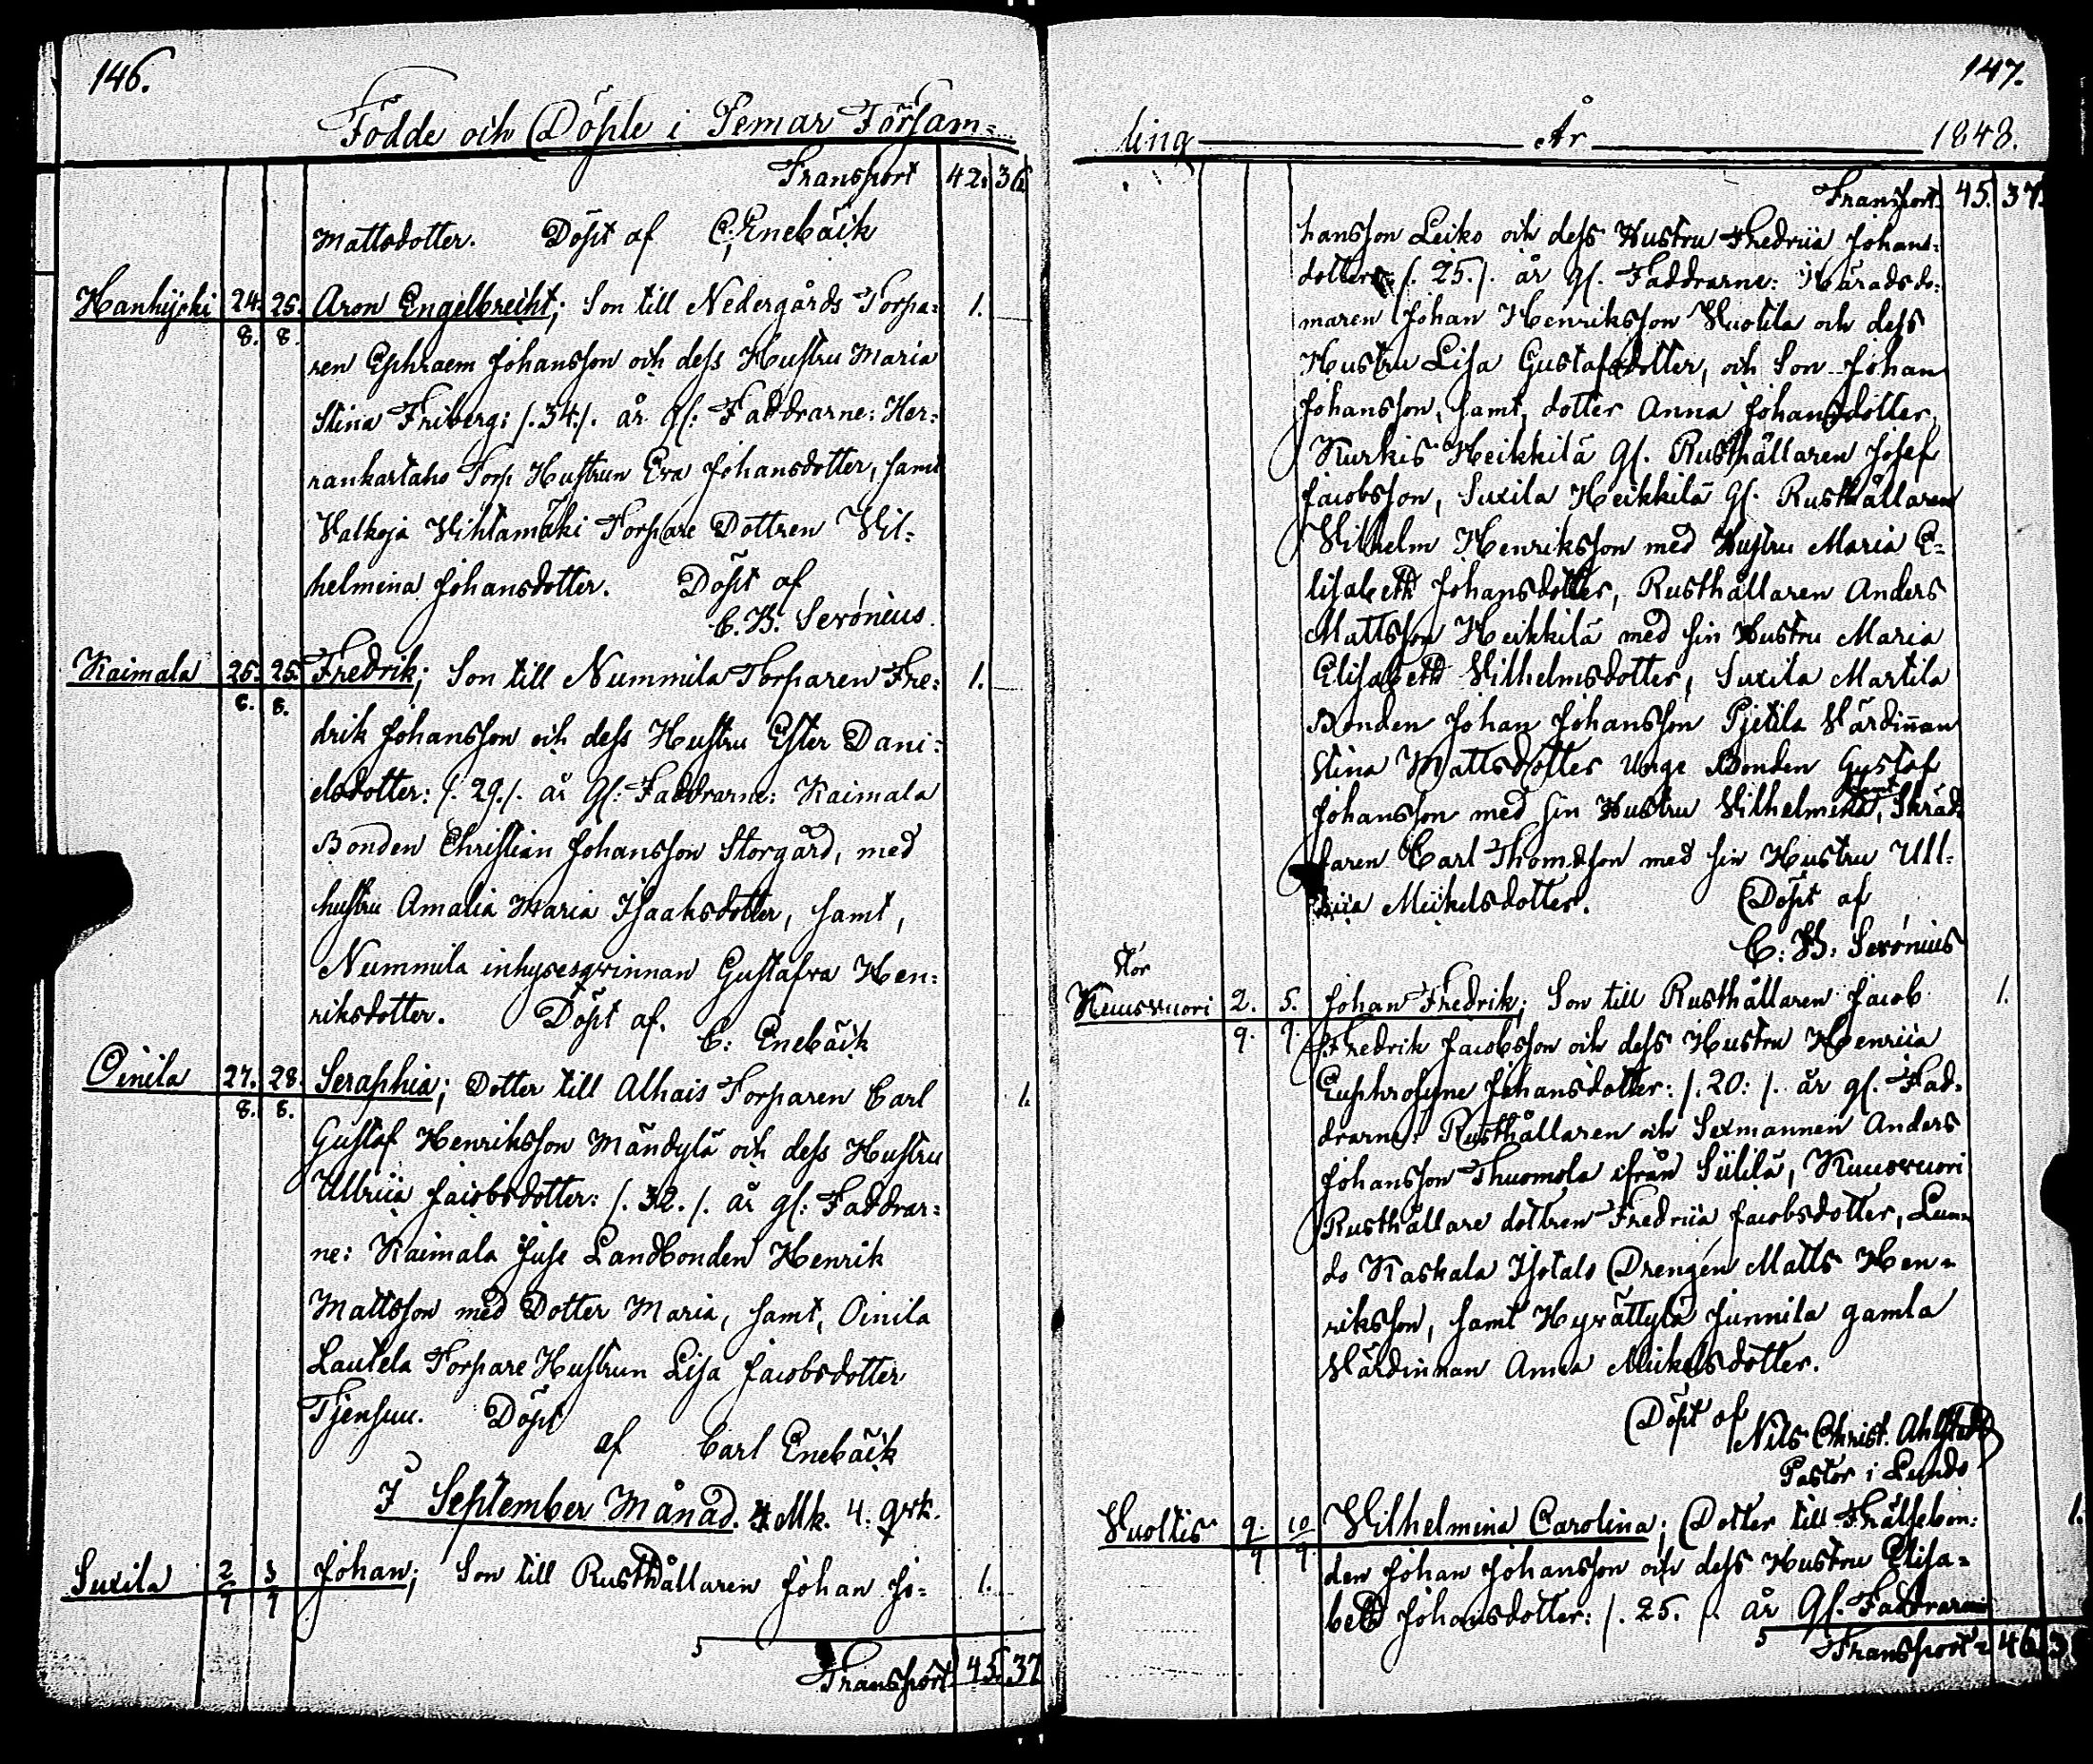 146.
Födde och Döpte i Pemar Församˍ
Transport 42. 36
Mattsdotter. Döpt af C. Enebäck
Hanhijoki 24. 25. Aron Engelbrecht; Son till Nedergårds Torpa= 1.
8. 8.
ren Ephraem Johansson och dess Hustru Maria
Stina Friberg: /. 34 /. år gl: Faddrarne: Her=
rankartano Torp Hustrun Eva Johansdotter, samt
Valkoja Vihtamäki Torpare Dottren Vil=
helmina Johansdotter. Döpt af
C. H. Serónius.
Kaimala 25. 25. Fredrik; Son till Nummila Torparen Fre= 1.
8. 8.
drik Johansson och dess Hustru Ester Dani=
elsdotter: /. 29 /. år gl: Faddrarne: Kaimala
Bonden Christian Johansson Storgård, med
hustru Amalia Maria Isaaksdotter, samt,
Nummila inhysesqvinnan Gustafva Hen=
riksdotter. Döpt af.
C: Enebäck
Oinila 27. 28. Seraphia; Dotter till Alhais Torparen Carl 1.
8. 8.
Gustaf Henriksson Mändylä och dess Hustru
Ullrica Jacobsdotter: /. 32. /. år gl: Faddrar=
ne: Kaimala Juse Landbonden Henrik
Mattsson med Dotter Maria, samt, Oinila
Lautela Torpare Hustrun Lisa Jacobsdotter
Tjensuu. Döpt
af Carl Enebäck
I September Månad. 4 Mk. 4: qvk.
Suxila 2/9 3/9 Johan; Son till Rusthållaren Johan Jo= 1.
Transport 45. 37
147.
ling År 1848.
Transport. 45. 37.
hansson Leiko och dess Hustru Fredrica Johans=
dotter: /. 25. /. år gl. Faddrarne: Häradsdo=
maren Johan Henriksson Vuotila och dess
Hustru Lisa Gustafsdotter, och Son Johan
Johansson, samt, dotter Anna Johansdotter,
Kurkis Heikkilä gl. Rusthållaren Josef
Jacobsson, Suxila Heikkilä gl. Rusthållaren
Vilhelm Henriksson med Hustru Maria E=
lisabeth Johansdotter, Rusthållaren Anders
Mattsson Heikkilä med sin Hustru Maria
Elisabeth Vilhelmsdotter, Suxila Martila
Bonden Johan Johansson Pjetila Värdinnan
Stina Mattsdotter Unge Bonden Gustaf
Johansson med sin Hustru Vilhelmina, samt Skräd=
daren Carl Thomasson med sin Hustru Ull=
rica Mickelsdotter. Döpt af
C: H: Serónius
Stor
Kuusvuori 2. 5. Johan Fredrik; Son till Rusthållaren Jacob 1.
9. 9.
Fredrik Jacobsson och dess Hustru Henrica
Euphrosyne Johansdotter: /. 20: /. år gl. Fad=
drarne: Rusthållaren och Sexmannen Anders
Johansson Thuomola ifrån Sülilä, Kuusvuori
Rusthållare dottren Fredrica Jacobsdotter, Lun=
do Kaskala Isotalo Drengen Matts Hen=
riksson, samt Hyvättylä Junnila gamla
Värdinnan Anna Mickelsdotter.
Döpt af
Nils Christ. Ahlstedt
Pastor i Lundo
Vuoltis 9/9 10/9 Wilhelmina Carolina; Dotter till Frälsebon= 1.
den Johan Johansson och dess Hustru Elisa=
beth Johansdotter: /. 25. /. år gl. Faddrarne
Transport 46. 3